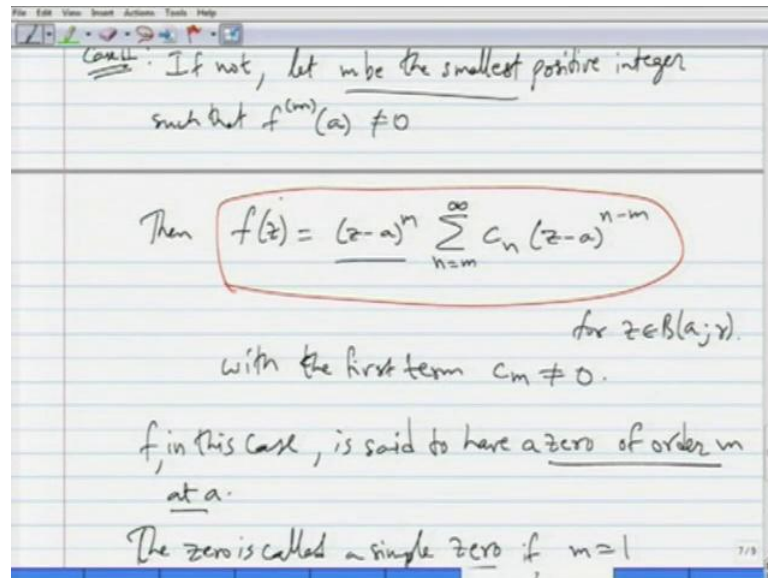 File Edit View Insert Actions Tools Help
Case II: If not, let m be the smallest positive integer
such that f^(m)(a) ≠ 0
Then f(z) = (z-a)^m ∑_{n=m}^{∞} c_n (z-a)^{n-m}
for z∈B(a;r).
with the first term c_m ≠ 0.
f, in this case, is said to have a zero of order m
at a.
The zero is called a simple zero if m=1